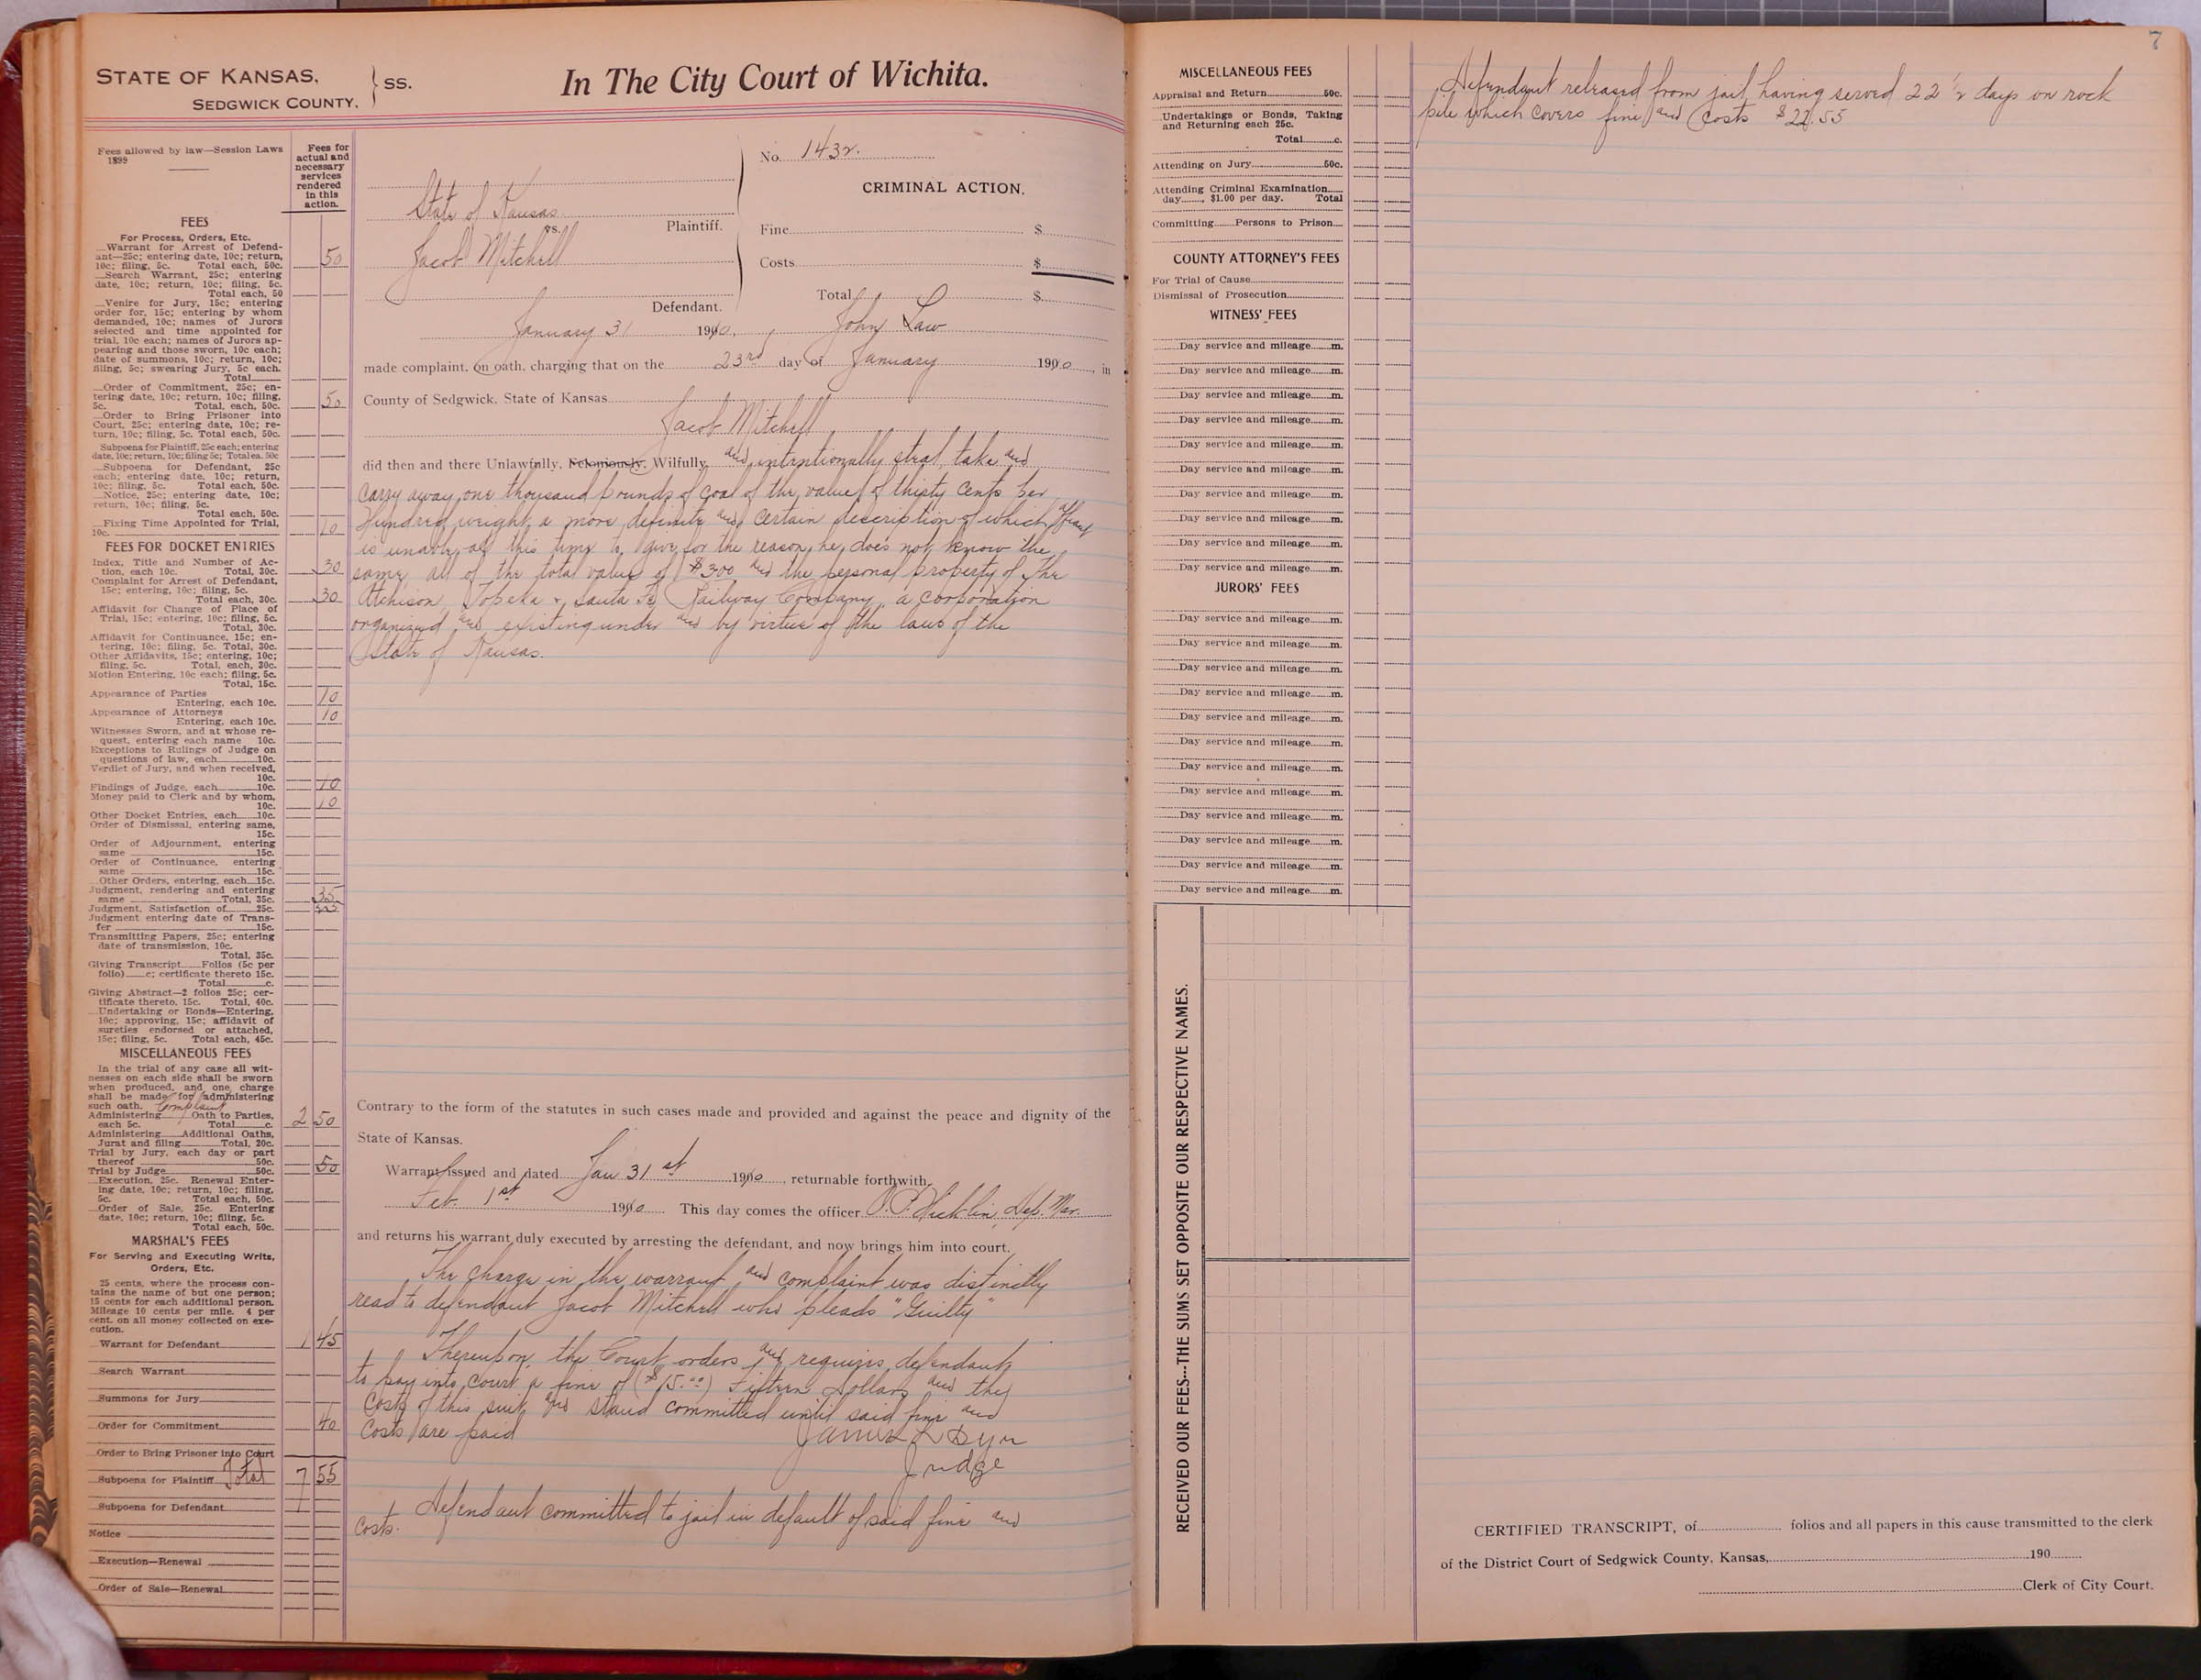 STATE OF KANSAS,
SEDGWICK COUNTY.
SS.
In The City Court of Wichita.
Fees allowed by law—Session Laws
1899
Fees for
actual and
necessary
services
rendered
in this
action.
FEES
For Process, Orders, Etc.
Warrant for Arrest of Defend-
ant—25c; entering date, 10c; return,
10c; filing, 5c. Total each, 50c. 50
Search Warrant, 25c; entering
date, 10c; return, 10c; filing, 5c.
Total each, 50
Venire for Jury, 15c; entering
order for, 15c; entering by whom
demanded, 10c; names of Jurors
selected and time appointed for
trial, 10c each; names of Jurors ap-
pearing and those sworn, 10c each;
date of summons, 10c; return, 10c;
filing, 5c; swearing Jury, 5c each.
Total
Order of Commitment, 25c; en-
tering date, 10c; return, 10c; filing,
5c. Total, each, 50c. 50
Order to Bring Prisoner into
Court, 25c; entering date, 10c; re-
turn, 10c; filing, 5c. Total each, 50c.
Subpoena for Plaintiff, 25c each; entering
date, 10c; return, 10c; filing 5c; Total ea. 50c
Subpoena for Defendant, 25c
each; entering date, 10c; return,
10c; filing, 5c. Total each, 50c.
Notice, 25c; entering date, 10c;
return, 10c; filing, 5c.
Total each, 50c.
Fixing Time Appointed for Trial,
10c. 10
FEES FOR DOCKET ENTRIES
Index, Title and Number of Ac-
tion, each 10c. Total, 30c. 30
Complaint for Arrest of Defendant,
15c; entering, 10c; filing, 5c.
Total each, 30c. 30
Affidavit for Change of Place of
Trial, 15c; entering, 10c; filing, 5c.
Total, 30c.
Affidavit for Continuance, 15c; en-
tering, 10c; filing, 5c. Total, 30c.
Other Affidavits, 15c; entering, 10c;
filing, 5c. Total, each, 30c.
Motion Entering, 10c each; filing, 5c.
Total, 15c.
Appearance of Parties
Entering, each 10c. 10
Appearance of Attorneys 10
Entering, each 10c.
Witnesses Sworn, and at whose re-
quest, entering each name 10c.
Exceptions to Rulings of Judge on
questions of law, each 10c.
Verdict of Jury, and when received,
10c.
Findings of Judge, each 10c. 10
Money paid to Clerk and by whom,
10c. 10
Other Docket Entries, each 10c.
Order of Dismissal, entering same,
15c.
Order of Adjournment, entering
same 15c.
Order of Continuance, entering
same 15c.
Other Orders, entering, each 15c.
Judgment, rendering and entering
same Total, 35c. 35
Judgment, Satisfaction of 25c.
Judgment entering date of Trans-
fer 15c.
Transmitting Papers, 25c; entering
date of transmission, 10c.
Total, 35c.
Giving Transcript Folios (5c per
folio) c; certificate thereto 15c.
Total c.
Giving Abstract—2 folios 25c; cer-
tificate thereto, 15c. Total, 40c.
Undertaking or Bonds—Entering,
10c; approving, 15c; affidavit of
sureties endorsed or attached,
15c; filing, 5c. Total each, 45c.
MISCELLANEOUS FEES
In the trial of any case all wit-
nesses on each side shall be sworn
when produced, and one charge
shall be made for administering
such oath. Complaint
Administering Oath to Parties,
each 5c. Total c. 2 50
Administering Additional Oaths,
Jurat and filing Total, 20c.
Trial by Jury, each day or part
thereof 50c.
Trial by Judge 50c. 50
Execution, 25c. Renewal Enter-
ing date, 10c; return, 10c; filing,
5c. Total each, 50c.
Order of Sale, 25c. Entering
date, 10c; return, 10c; filing, 5c.
Total each, 50c.
MARSHAL'S FEES
For Serving and Executing Writs,
Orders, Etc.
25 cents, where the process con-
tains the name of but one person;
15 cents for each additional person.
Mileage 10 cents per mile. 4 per
cent. on all money collected on exe-
cution.
Warrant for Defendant 1 45
Search Warrant
Summons for Jury
Order for Commitment 40
Order to Bring Prisoner into Court
Subpoena for Plaintiff Total 7 55
Subpoena for Defendant
Notice
Execution—Renewal
Order of Sale—Renewal
State of Kansas
Plaintiff.
vs.
Jacob Mitchell
Defendant.
No. 1432.
CRIMINAL ACTION.
Fine $
Costs $
Total $
January 31 1900, John Law
made complaint, on oath, charging that on the 23rd day of January 1900, in
County of Sedgwick, State of Kansas
Jacob Mitchell
did then and there Unlawfully, Feloniously, Wilfully and intentionally steal, take and
carry away one thousand pounds of coal of the value of thirty cents per
Hundred weight a more definite and certain description of which affiant
is unable at this time to give for the reason he does not know the
same all of the total value of $3.00 and the personal property of the
Atchison, Topeka & Santa Fe Railway Company, a corporation
organized and existing under and by virtue of the laws of the
State of Kansas.
Contrary to the form of the statutes in such cases made and provided and against the peace and dignity of the
State of Kansas.
Warrant issued and dated Jan 31st 1900, returnable forthwith.
Feb. 1st 1900 This day comes the officer O. P. Hicklin, Dep. Mar.
and returns his warrant duly executed by arresting the defendant, and now brings him into court.
The charge in the warrant and complaint was distinctly
read to defendant Jacob Mitchell who pleads "Guilty"
Thereupon, the Court orders and requires defendant
to pay into Court a fine of ($15.00) Fifteen Dollars and the
costs of this suit and stand committed until said fine and
costs are paid
James L Dyer
Judge
Defendant committed to jail in default of said fine and
costs.
MISCELLANEOUS FEES
Appraisal and Return 50c.
Undertakings or Bonds, Taking
and Returning each 25c.
Total c.
Attending on Jury 50c.
Attending Criminal Examination
day, $1.00 per day. Total
Committing Persons to Prison
COUNTY ATTORNEY'S FEES
For Trial of Cause
Dismissal of Prosecution
WITNESS' FEES
Day service and mileage m.
Day service and mileage m.
Day service and mileage m.
Day service and mileage m.
Day service and mileage m.
Day service and mileage m.
Day service and mileage m.
Day service and mileage m.
Day service and mileage m.
Day service and mileage m.
JURORS' FEES
Day service and mileage m.
Day service and mileage m.
Day service and mileage m.
Day service and mileage m.
Day service and mileage m.
Day service and mileage m.
Day service and mileage m.
Day service and mileage m.
Day service and mileage m.
Day service and mileage m.
Day service and mileage m.
Day service and mileage m.
RECEIVED OUR FEES---THE SUMS SET OPPOSITE OUR RESPECTIVE NAMES.
7
Defendant released from jail, having served 22 1/2 days on rock
pile which covers fine and costs $22.55
CERTIFIED TRANSCRIPT, of folios and all papers in this cause transmitted to the clerk
of the District Court of Sedgwick County, Kansas, 190
Clerk of City Court.